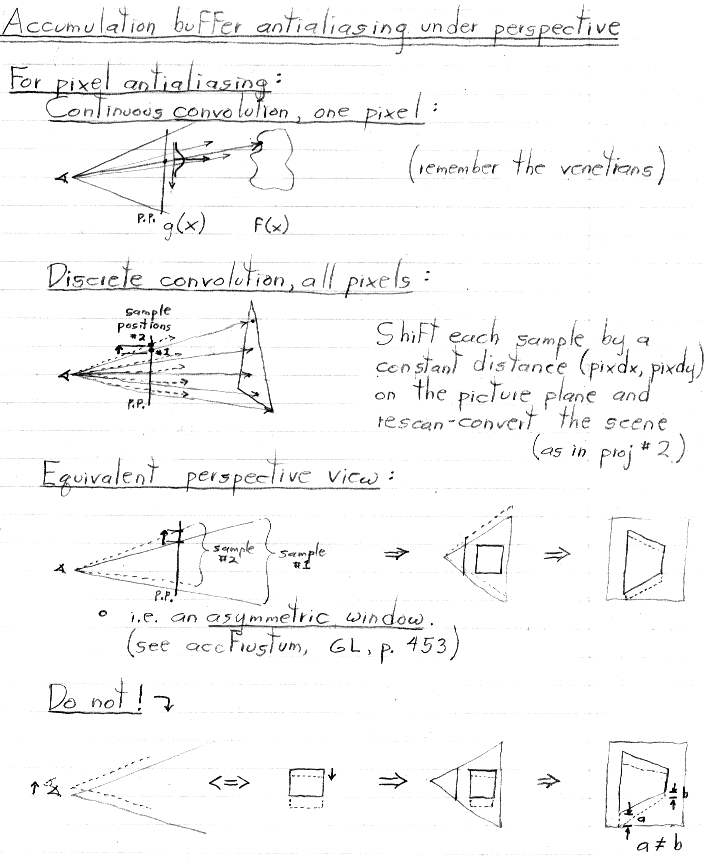 Accumulation buffer antialiasing under perspective
For pixel antialiasing:
Continuous convolution, one pixel:
(remember the venetians)
P.P.
g(x)
F(x)
Discrete convolution, all pixels:
sample
positions
#2
#1
P.P.
Shift each sample by a
constant distance (pixdx, pixdy)
on the picture plane and
rescan-convert the scene
(as in proj #2)
Equivalent perspective view:
sample
#2
sample
#1
⇒
⇒
P.P.
° i.e. an asymmetric window.
(see accFrustum, GL, p. 453)
Do not!
<=>
⇒
⇒
a
b
a ≠ b